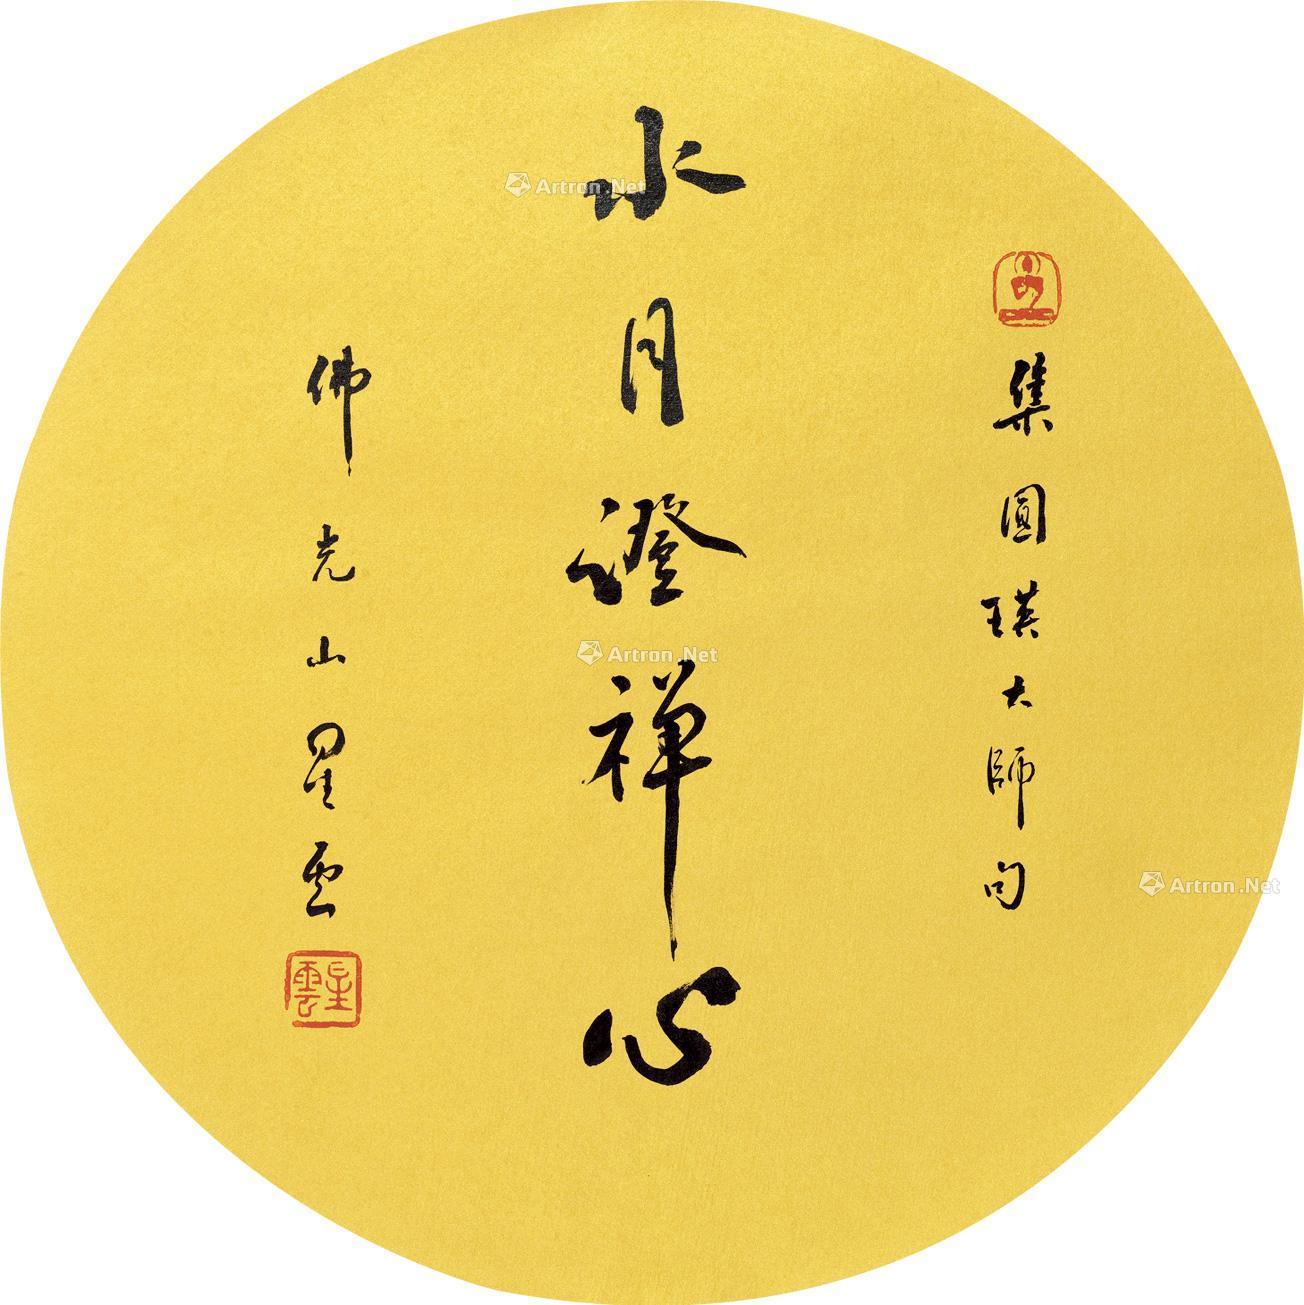 集圓瑛大師句
水月證禪心
佛光山星雲
星雲
Artron.Net
Artron.Net
Artron.Net